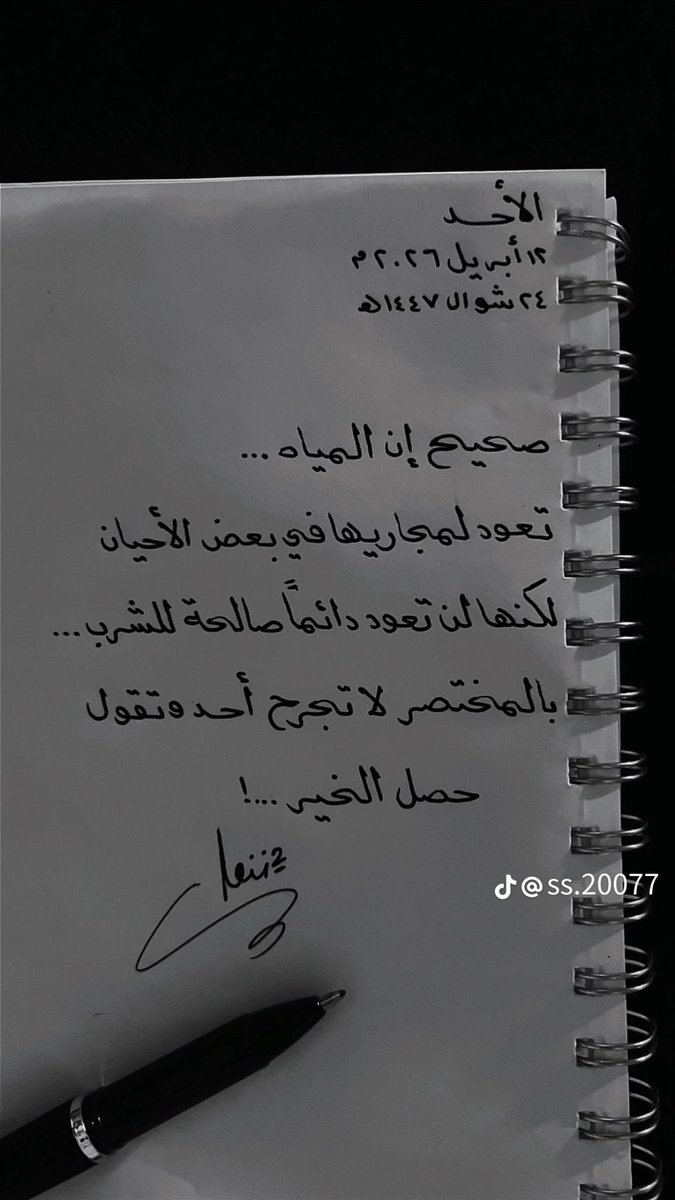 الأحد
١٢ أبريل ٢٠٢٦ م
٢٤ شوال ١٤٤٧هـ
صحيح إن المياه ...
تعود لمجاريها في بعض الأحيان
لكنها لن تعود دائماً صالحة للشرب ...
بالمختصر لا تجرح أحد وتقول
حصل الخير ...!
@ss.20077